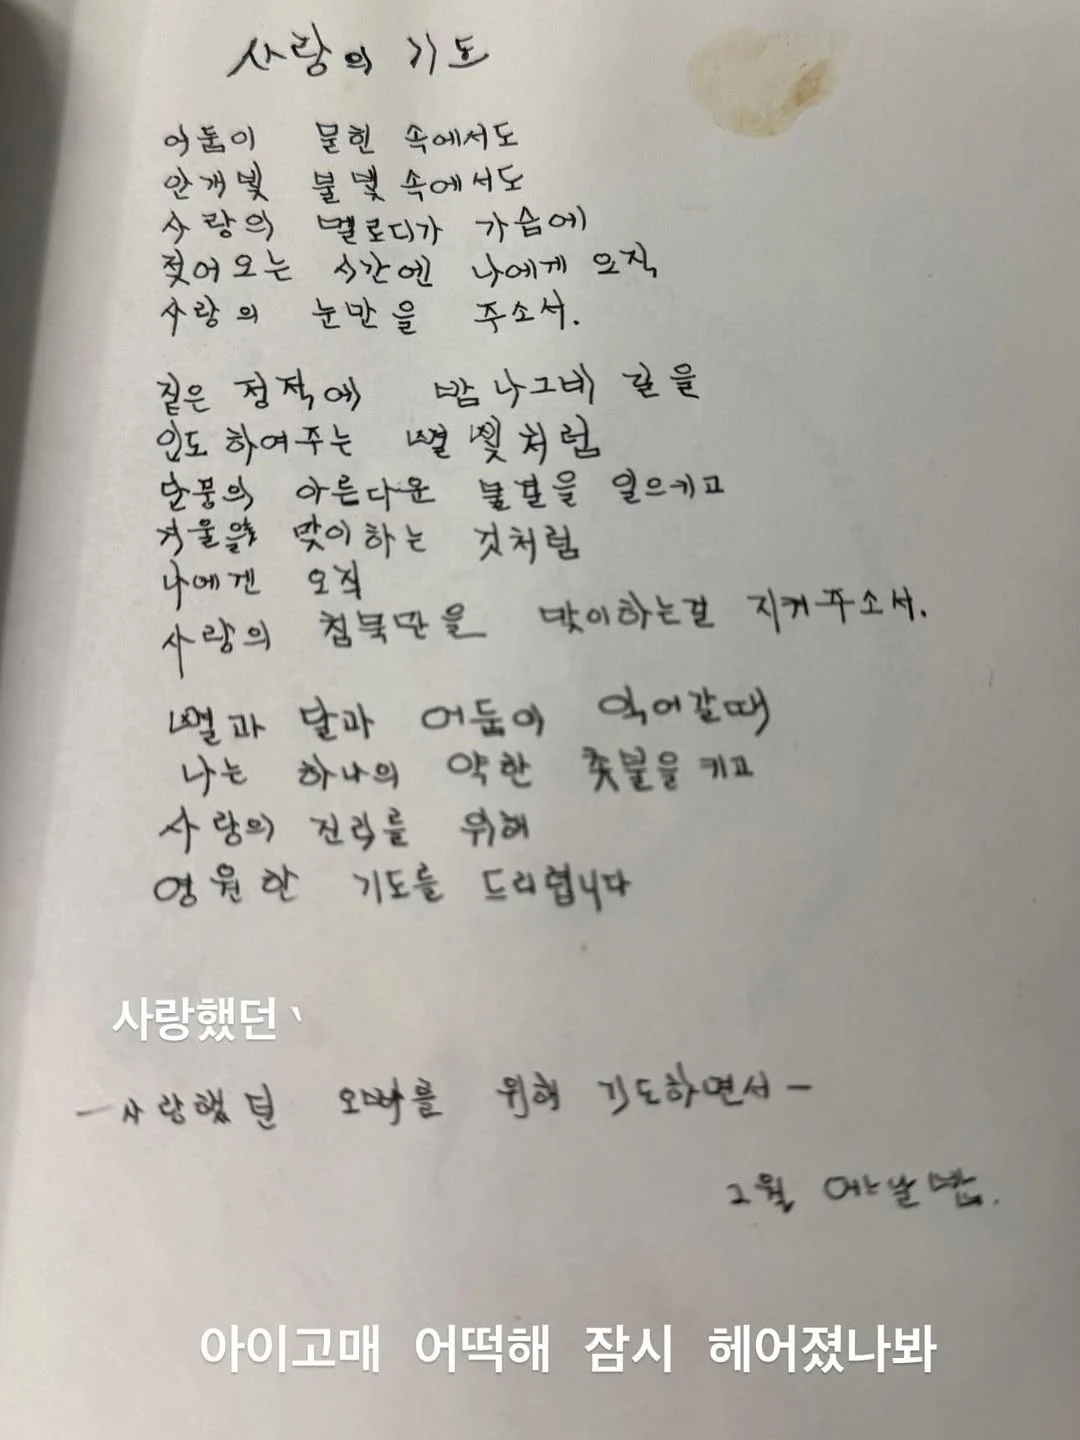 사랑의 기도
어둠이 묻힌 속에서도
안개빛 불빛 속에서도
사랑의 멜로디가 가슴에
젖어오는 시간엔 나에게 오직
사랑의 눈만을 주소서.
짙은 정적에 밤 나그네 길을
인도하여주는 별빛처럼
단풍의 아름다운 불길을 일으키고
겨울을 맞이하는 것처럼
나에겐 오직
사랑의 침묵만을 맞이하는걸 지켜주소서.
별과 달과 어둠이 익어갈때
나는 하나의 약한 촛불을 키고
사랑의 진리를 위해
영원한 기도를 드리렵니다
사랑했던、
-사랑했던 오빠를 위해 기도하면서-
2월 어느날 밤.
아이고매 어떡해 잠시 헤어졌나봐